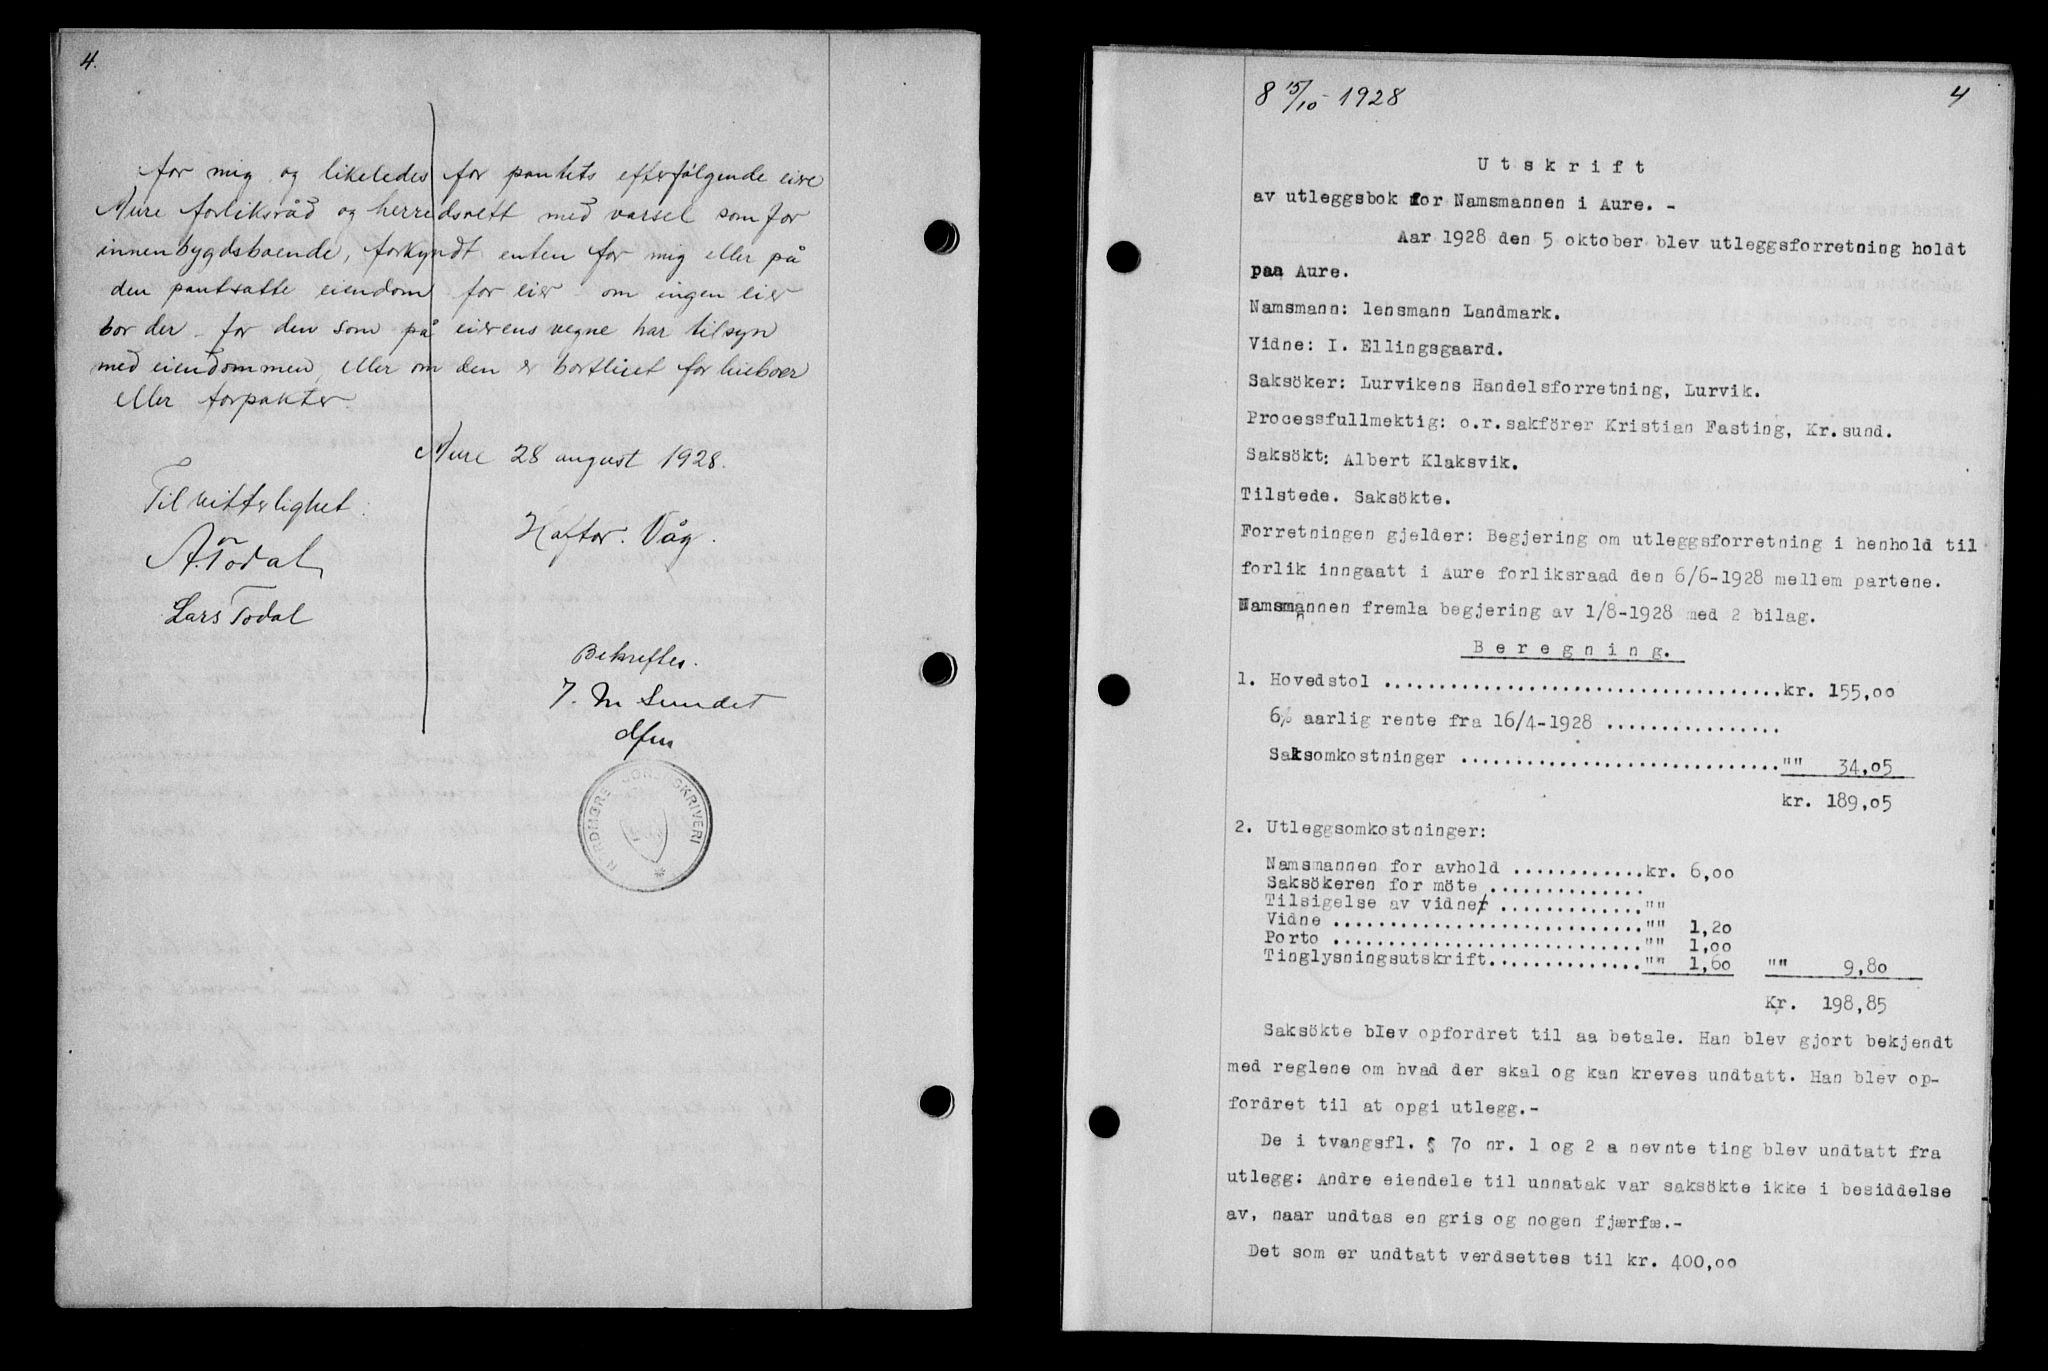 4.
for mig og likeledes for pantets efterfølgende eiere
Aure forliksråd og herredsrett med varsel som for
innenbygdsboende, forkyndt enten for mig eller på
den pantsatte eiendom for eier - om ingen eier
bor der - for den som på eierens vegne har tilsyn
med eiendommen, eller om den er bortleiet for leieboer
eller forpakter.
Aure 28 august 1928.
Til vitterlighet:
Haftor. Våg.
A. Todal
Lars Todal
Bekreftes.
J. M Sundet
NORDMØRE SORENSKRIVERI
8 15/10 - 1928
4
Utskrift
av utleggsbok for Namsmannen i Aure. -
Aar 1928 den 5 oktober blev utleggsforretning holdt
paa Aure.
Namsmann: lensmann Landmark.
Vidne: I. Ellingsgaard.
Saksöker: Lurvikens Handelsforretning, Lurvik.
Processfullmektig: o.r.sakförer Kristian Fasting, Kr.sund.
Saksökt: Albert Klaksvik.
Tilstede. Saksökte.
Forretningen gjelder: Begjering om utleggsforretning i henhold til
forlik inngaatt i Aure forliksraad den 6/6-1928 mellem partene.
Namsmannen fremla begjering av 1/8-1928 med 2 bilag.
Beregning.
1. Hovedstol ......................................kr. 155,00
6% aarlig rente fra 16/4-1928 .................
Saksomkostninger .............................."" 34,05
kr. 189,05
2. Utleggsomkostninger:
Namsmannen for avhold .............kr. 6,00
Saksökeren for möte ...............
Tilsigelse av vidner ..............""
Vidne ............................."" 1,20
Porto ............................."" 1,00
Tinglysningsutskrift..............."" 1,60 "" 9,80
Kr. 198,85
Saksökte blev opfordret til aa betale. Han blev gjort bekjendt
med reglene om hvad der skal og kan kreves undtatt. Han blev op-
fordret til at opgi utlegg.-
De i tvangsfl. § 70 nr. 1 og 2 a nevnte ting blev undtatt fra
utlegg: Andre eiendele til unnatak var saksökte ikke i besiddelse
av, naar undtas en gris og nogen fjærfæ.-
Det som er undtatt verdsettes til kr. 400,00